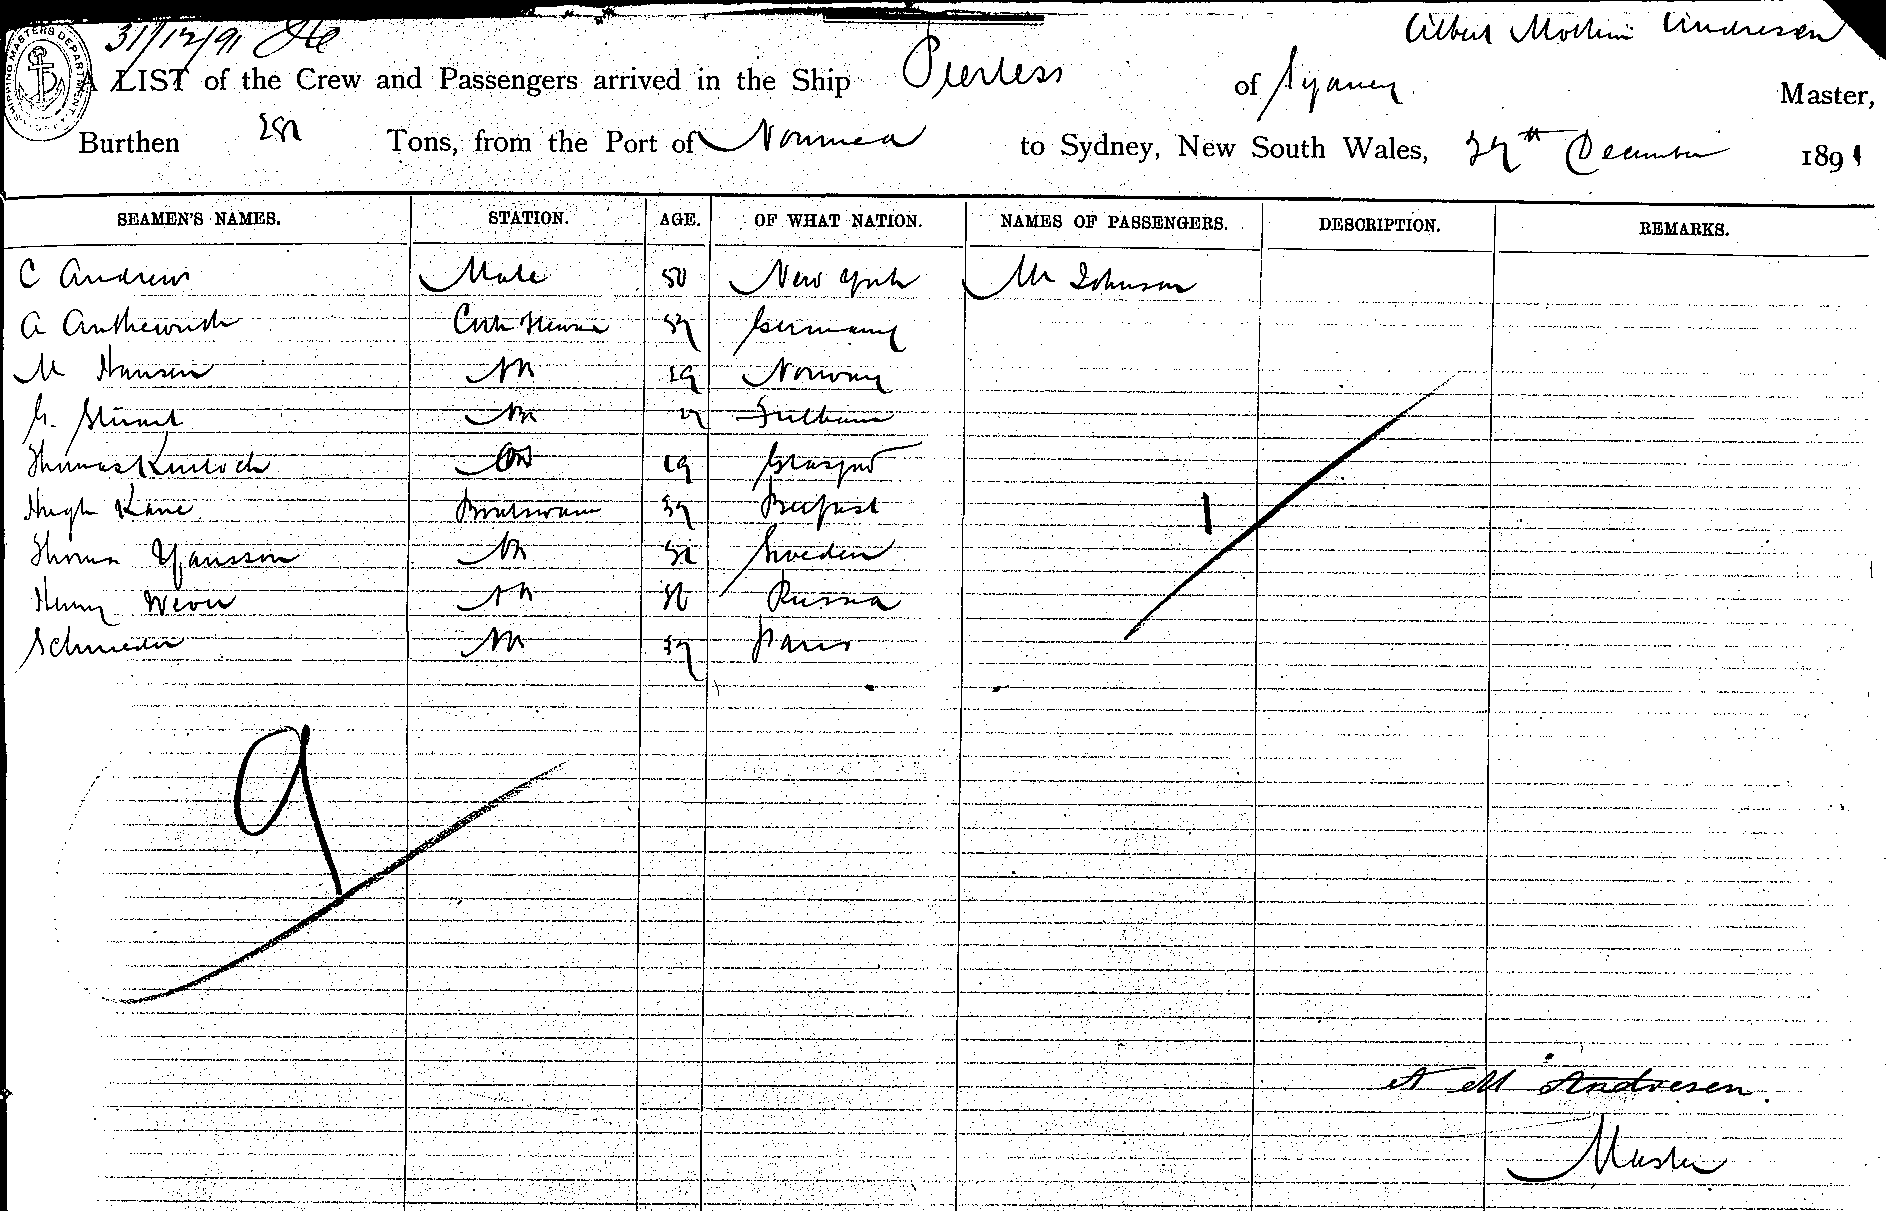 31/12/91
Albert Andresen
SHIPPING MASTERS DEPARTMENT
A LIST of the Crew and Passengers arrived in the Ship Peerless of Sydney Master,
Burthen Tons, from the Port of Noumea to Sydney, New South Wales, December 1891
SEAMEN'S NAMES. STATION. AGE. OF WHAT NATION. NAMES OF PASSENGERS. DESCRIPTION. REMARKS.
C Andrews Mate 50 New York Mr Johnson
A Germany
M Hansen AB 19 Norway
G. Stuart AB Fulham
Thomas Kinloch 19 Glasgow
Hugh Kane Boatswain Belfast
Thomas Yansson AB Sweden
Henry Wever AB Russia
Schmeder AB Paris
1
9
A M Andresen.
Master